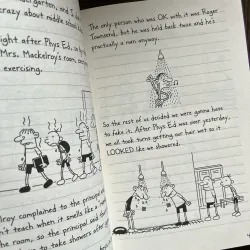 crazy about middle school
right after Phys Ed, so
Mrs. Mackelroy's room,
exercising.
lroy complained to the princip
n't teach when it smells like a
he room, so the principal
to take showers after
The only person who was OK with it was Roger
Townsend, but he was held back twice and he's
practically a man anyway.
So the rest of us decided we were gonna have
to fake it. After Phys Ed was over yesterday,
we all took turns getting our hair wet so it
LOOKED like we showered.